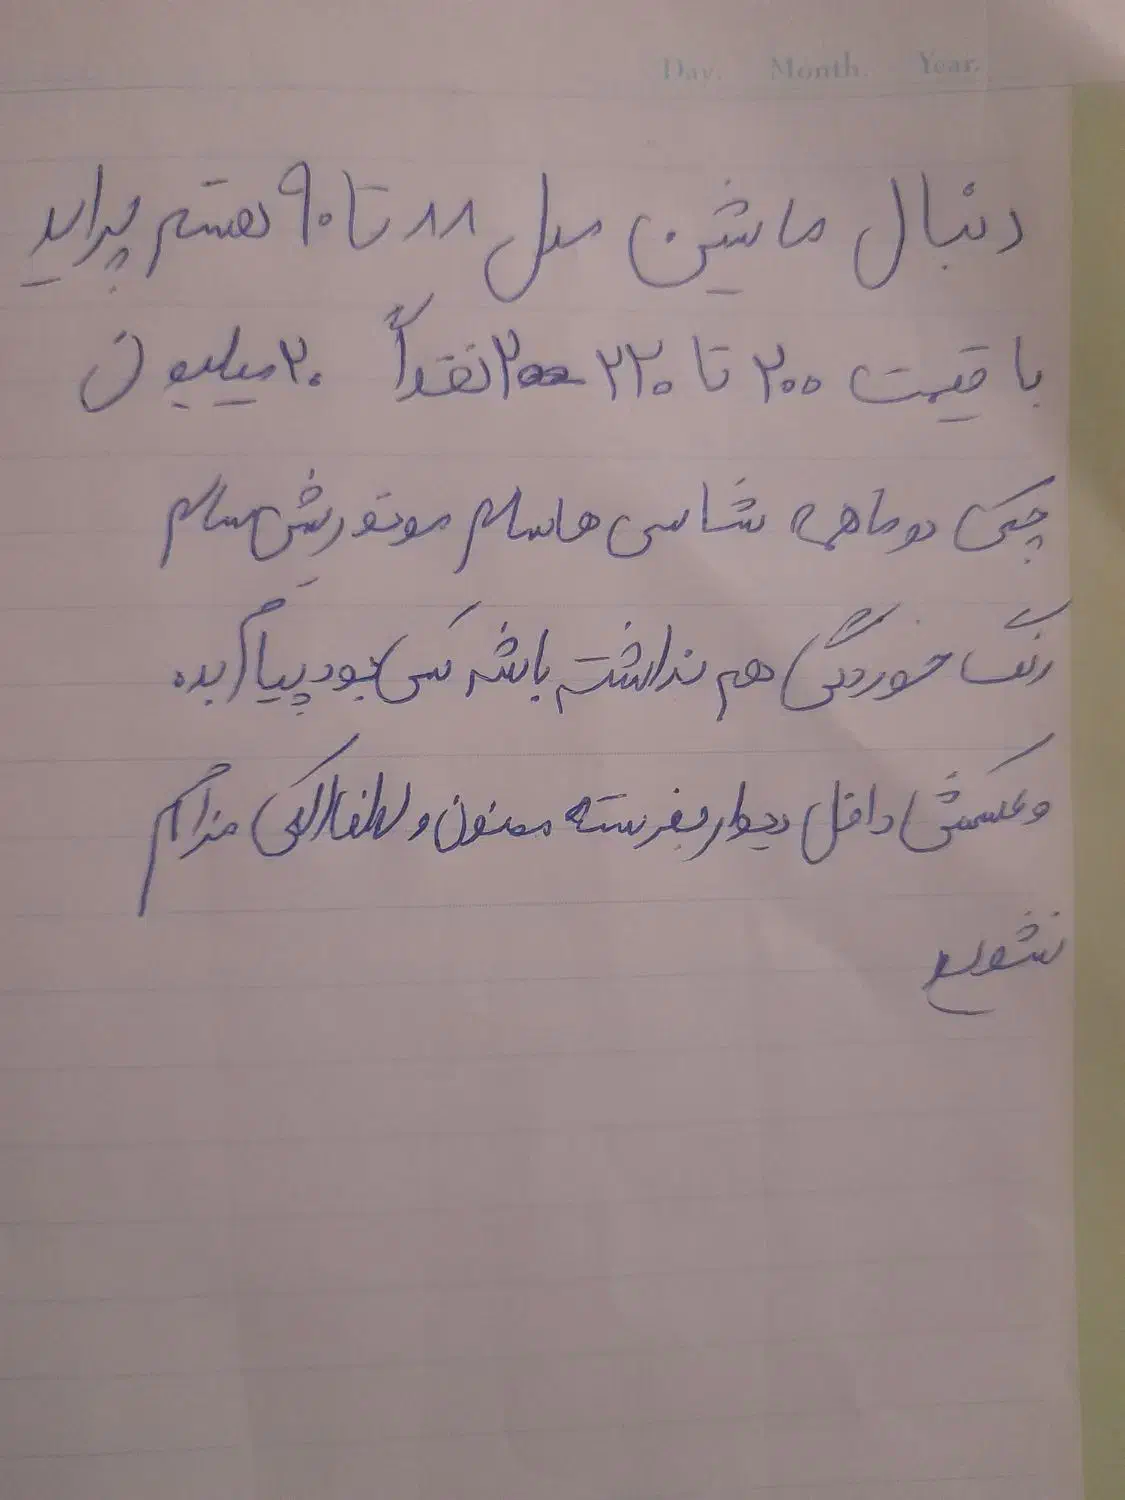 Day. Month. Year.
دنبال ماشین مدل ۸۸ تا ۹۰ هستم پراید
با قیمت ۲۰۰ تا ۲۲۰ ۲۰۰ نقداً ۲۰ میلیون
چک دو ماهه شاسی ها سالم موتورش سالم
رنگ خوردگی هم نداشته باشه کسی بود پیام بده
و عکسش داخل دیوار بفرسته ممنون و لطفا الکی مزاحم
نشوید